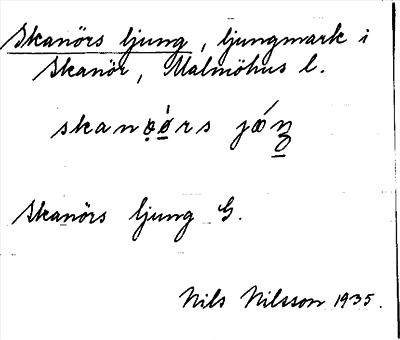 Skanörs ljung, ljungmark i
Skanör, Malmöhus l.
Skanörs ljung G.
Nils Nilsson 1935.